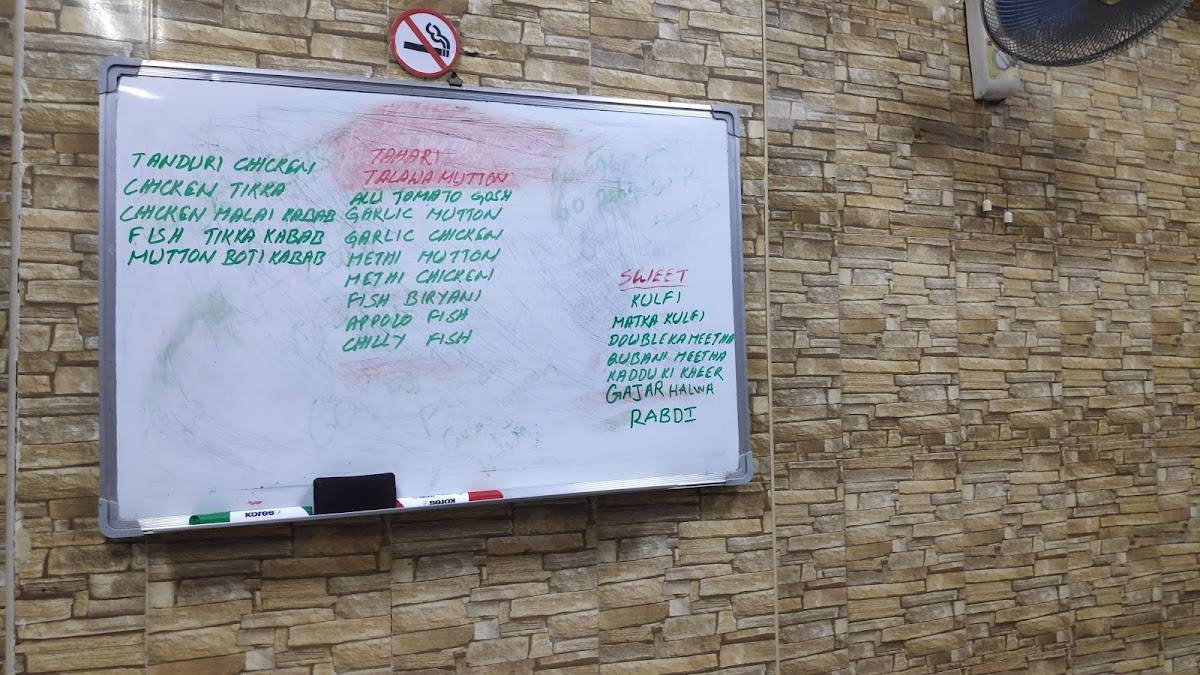 TANDURI CHICKEN
CHICKEN TIKKA
CHICKEN MALAI KABAB
FISH TIKKA KABAB
MUTTON BOTI KABAB
TAHARI
TALAWA MUTTON
ALU TOMATO GOSH
GARLIC MUTTON
GARLIC CHICKEN
METHI MUTTON
METHI CHICKEN
FISH BIRYANI
APPOLO FISH
CHILLY FISH
SWEET
KULFI
MATKA KULFI
DOUBLE KA MEETHA
QUBANI MEETHA
KADDU KI KHEER
GAJAR HALWA
RABDI
kores
kores